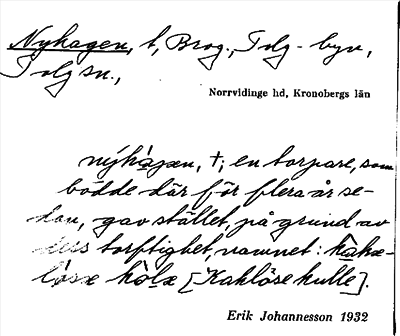 Nyhagen, t, Brog., Tolg-byn,
Tolg sn.,
Norrvidinge hd, Kronobergs län
nýhàgæn, †, en torpare, som
bodde där för flera år se-
dan, gav stället, på grund av
dess torftighet, namnet: 
[Kahlöse kulle].
Erik Johannesson 1932